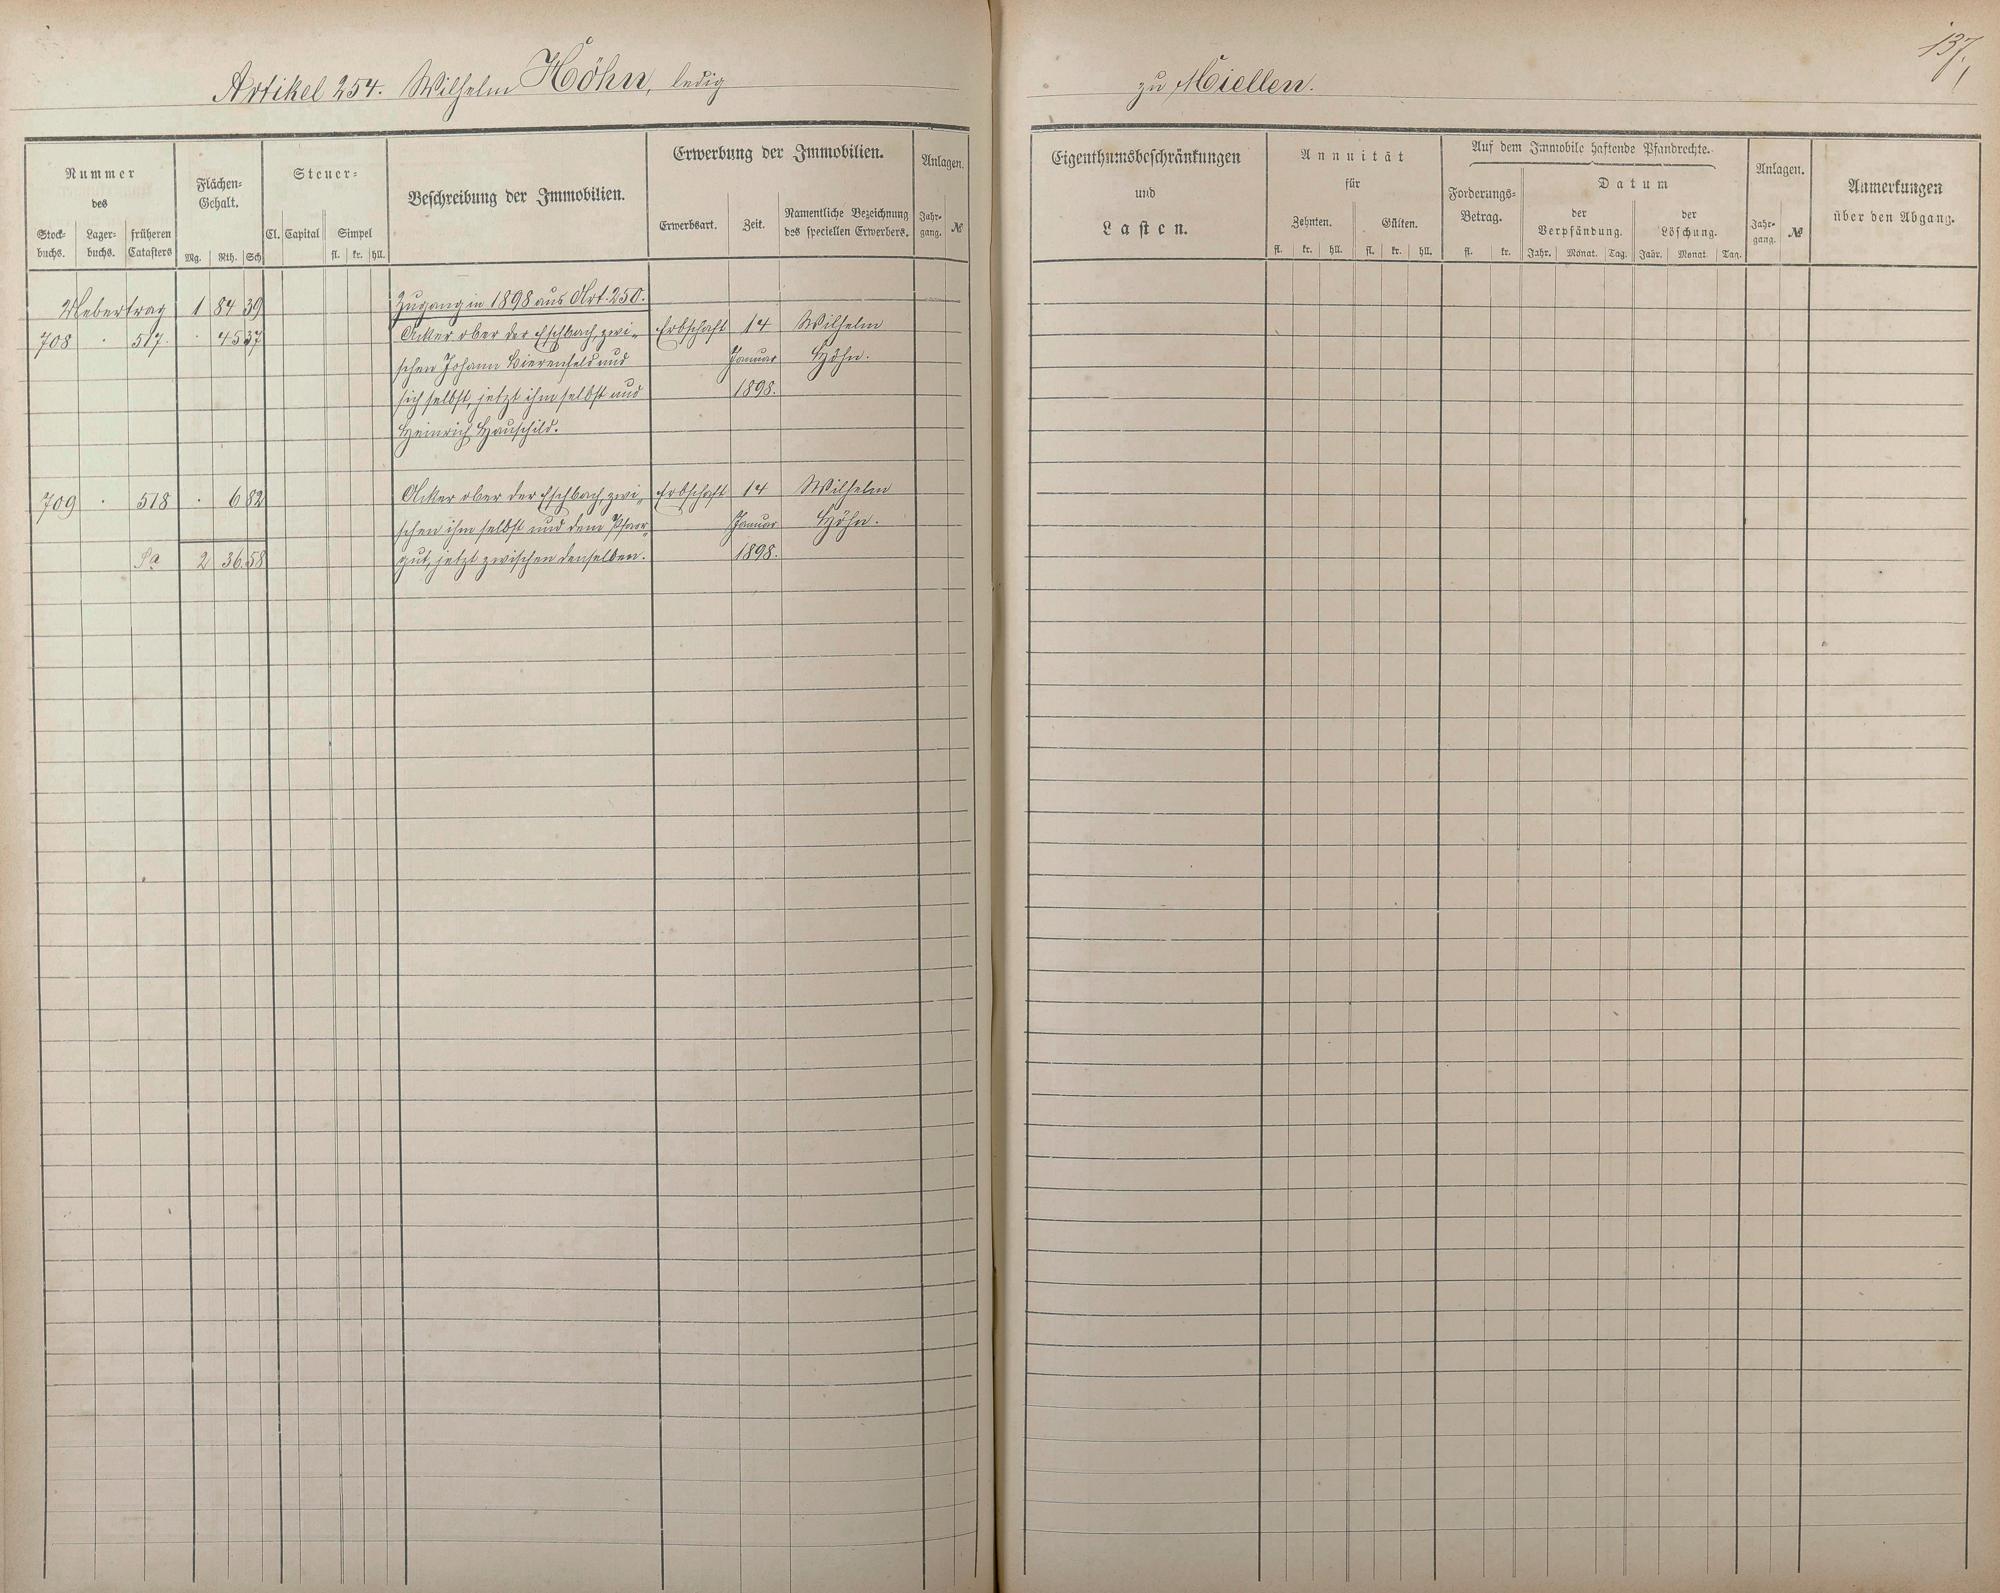 137,
Artikel 254. Wilhelm Höhn, ledig
zu Miellen.
Nummer
des
Stock-
buchs.
Lager-
buchs.
früheren
Catasters
Flächen-
Gehalt.
Mg. Rth. Sch
Steuer-
Cl. Capital Simpel
fl. kr. hll.
Beschreibung der Immobilien.
Erwerbung der Immobilien.
Erwerbsart. Zeit.
Namentliche Bezeichnung
des speciellen Erwerbers.
Anlagen.
Jahr-
gang.
№
Eigenthumsbeschränkungen
und
Lasten.
Annuität
für
Zehnten. Gülten.
fl. kr. hll. fl. kr. hll.
Auf dem Immobile haftende Pfandrechte.
Forderungs-
Betrag.
fl. kr.
Datum
der
Verpfändung.
Jahr. Monat. Tag.
der
Löschung.
Jahr. Monat. Tag.
Anlagen.
Jahr-
gang.
№
Anmerkungen
über den Abgang.
Uebertrag 1 84 39 Zugang in 1898 aus Art. 250.
708 · 517. · 45 37 Acker ober der Eschbach, zwi- Erbschaft 14 Wilhelm
schen Johann Bierenfeld und Januar Höhn.
sich selbst, jetzt ihm selbst und 1898.
Heinrich Hauschild.
709 · 518 · 6 82 Acker ober der Eschbach, zwi- Erbschaft 14 Wilhelm
schen ihm selbst und dem Pfarr- Januar Höhn.
Sa 2 36 58 gut, jetzt zwischen denselben. 1898.